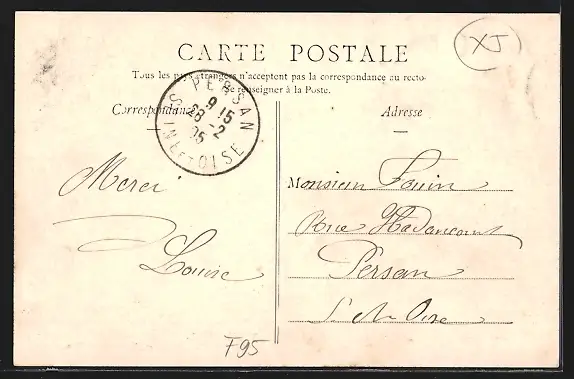 CARTE POSTALE
Tous les pays étrangers n'acceptent pas la correspondance au recto-
Se renseigner à la Poste.
Correspondance
Adresse
PERSAN
9 15
28 -2
05
SEINE ET OISE
XJ
Merci
Louise
Monsieur Louin
Rue Hadancourt
Persan
S. et Oise
F95